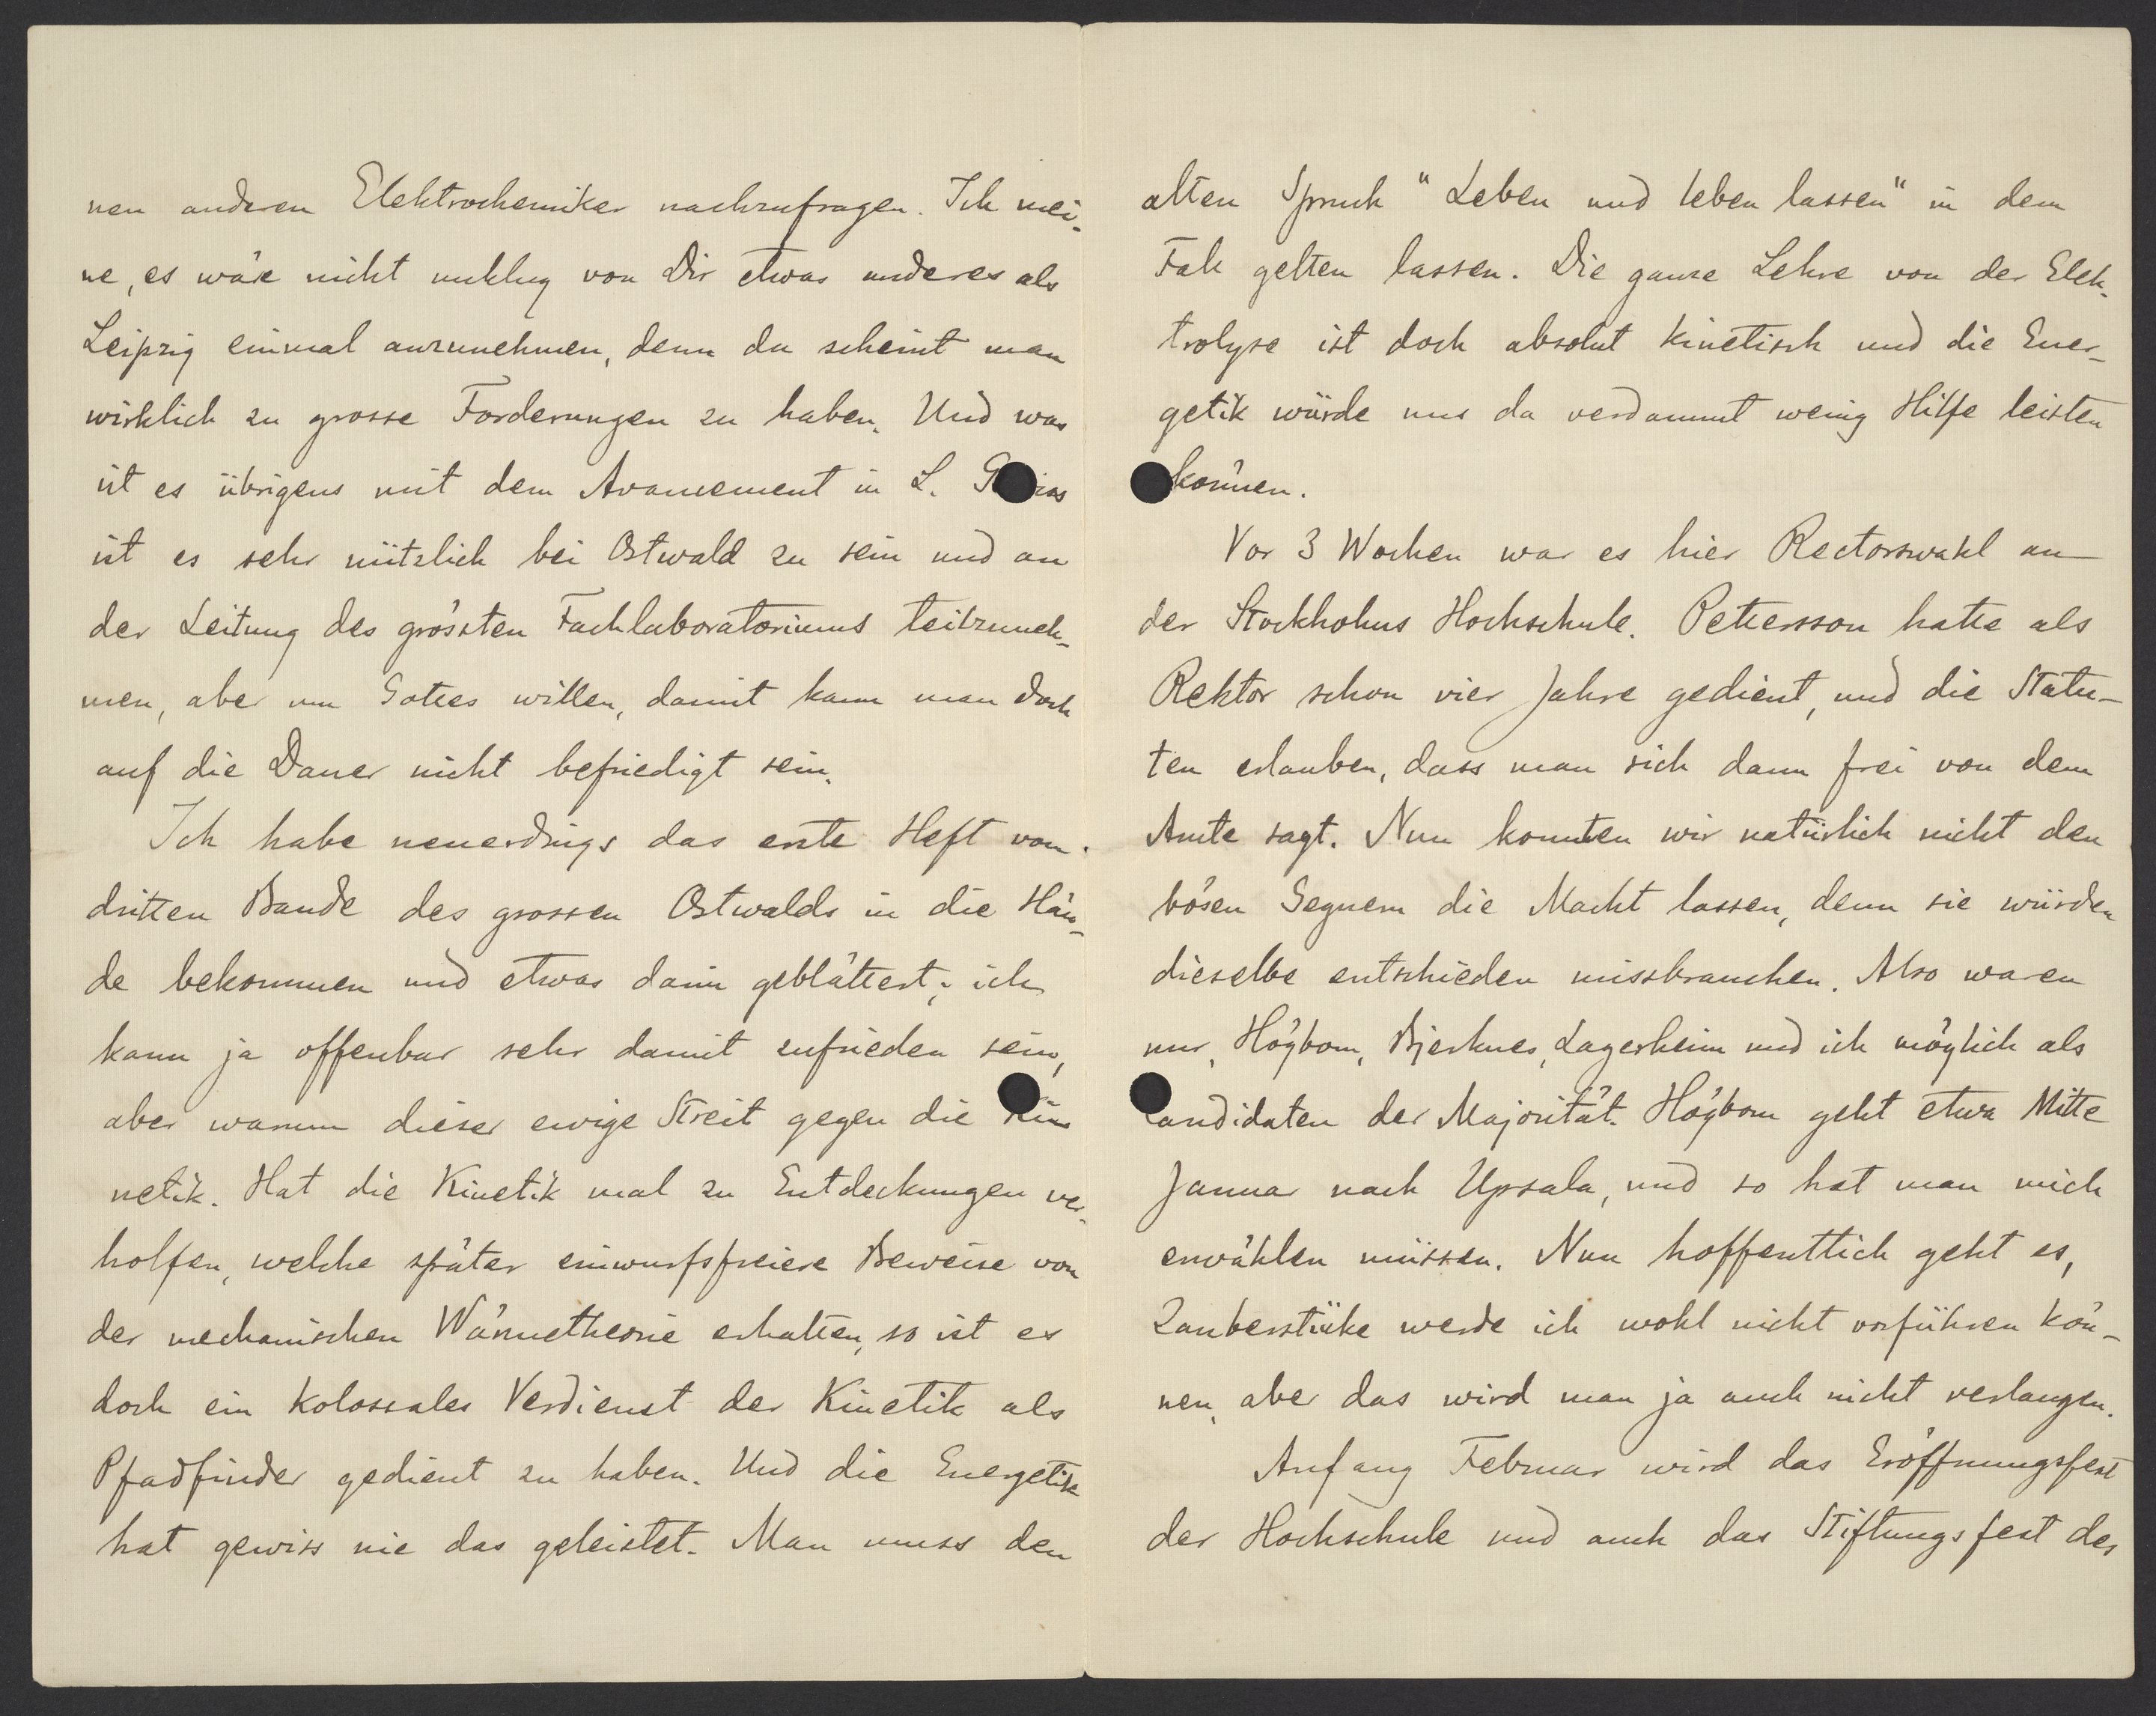 nen anderen Elektrochemiker nachzufragen. Ich mei-
ne, es wäre nicht unklug von Dir etwas anderes als
Leipzig einmal anzunehmen, denn da scheint man
wirklich zu grosse Forderungen zu haben. Und was
ist es übrigens mit dem Avancement in L.
ist es sehr nützlich bei Ostwald zu sein und an
der Leitung des grössten Fachlaboratoriums teilzuneh-
men, aber um Gottes willen, damit kann man doch
auf die Dauer nicht befriedigt sein.
Ich habe neuerdings das erste Heft vom
dritten Bande des grossen Ostwalds in die Hän-
de bekommen und etwas darin geblättert; ich
kann ja offenbar sehr damit zufrieden sein,
aber warum dieser ewige Streit gegen die Ki-
netik. Hat die Kinetik mal zu Entdeckungen ver-
holfen, welche später einwurfsfreiere Beweise von
der mechanischen Wärmetheorie erhalten, so ist es
doch ein kolossales Verdienst der Kinetik als
Pfadfinder gedient zu haben. Und die Energetik
hat gewiss nie das geleistet. Man muss den
alten Spruch "Leben und leben lassen" in dem
Fall gelten lassen. Die ganze Lehre von der Elek-
trolyse ist doch absolut kinetisch und die Ener-
getik würde uns da verdammt wenig Hilfe leisten
können.
Vor 3 Wochen war es hier Rectorswahl an
der Stockholms Hochschule. Pettersson hatte als
Rektor schon vier Jahre gedient, und die Statu-
ten erlauben, dass man sich dann frei von dem
Amte sagt. Nun konnten wir natürlich nicht den
bösen Gegnern die Macht lassen, denn sie würden
dieselbe entschieden missbrauchen. Also waren
nur, Högbom, Bjerknes, Lagerheim und ich möglich als
Candidaten der Majorität. Högbom geht etwa Mitte
Januar nach Upsala, und so hat man mich
erwählen müssen. Nun hoffentlich geht es,
Zauberstücke werde ich wohl nicht vorführen kön-
nen, aber das wird man ja auch nicht verlangen.
Anfang Februar wird das Eröffnungsfest
der Hochschule und auch das Stiftungsfest des